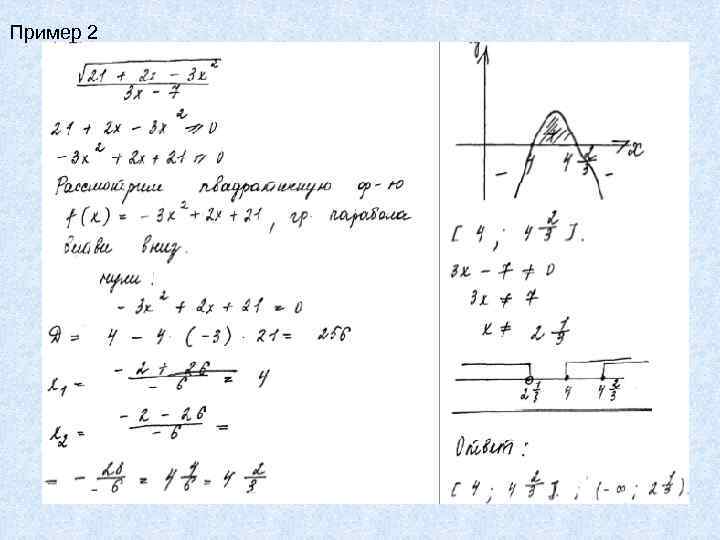 Пример 2
√(21 + 2x − 3x²) / (3x − 7)
21 + 2x − 3x² ⩾ 0
−3x² + 2x + 21 ⩾ 0
Рассмотрим квадратичную ф-ю
f(x) = −3x² + 2x + 21, гр. парабола
ветви вниз.
нули:
−3x² + 2x + 21 = 0
D = 4 − 4 · (−3) · 21 = 256
x₁ = (−2 + 26) / (−6) = 4
x₂ = (−2 − 26) / (−6) =
= −28/−6 = 4 4/6 = 4 2/3
y
− 4 4 2/3 − x
[4 ; 4 2/3].
3x − 7 ≠ 0
3x ≠ 7
x ≠ 2 1/3
2 1/3 4 4 2/3
Ответ:
[4 ; 4 2/3] ; (−∞ ; 2 1/3)